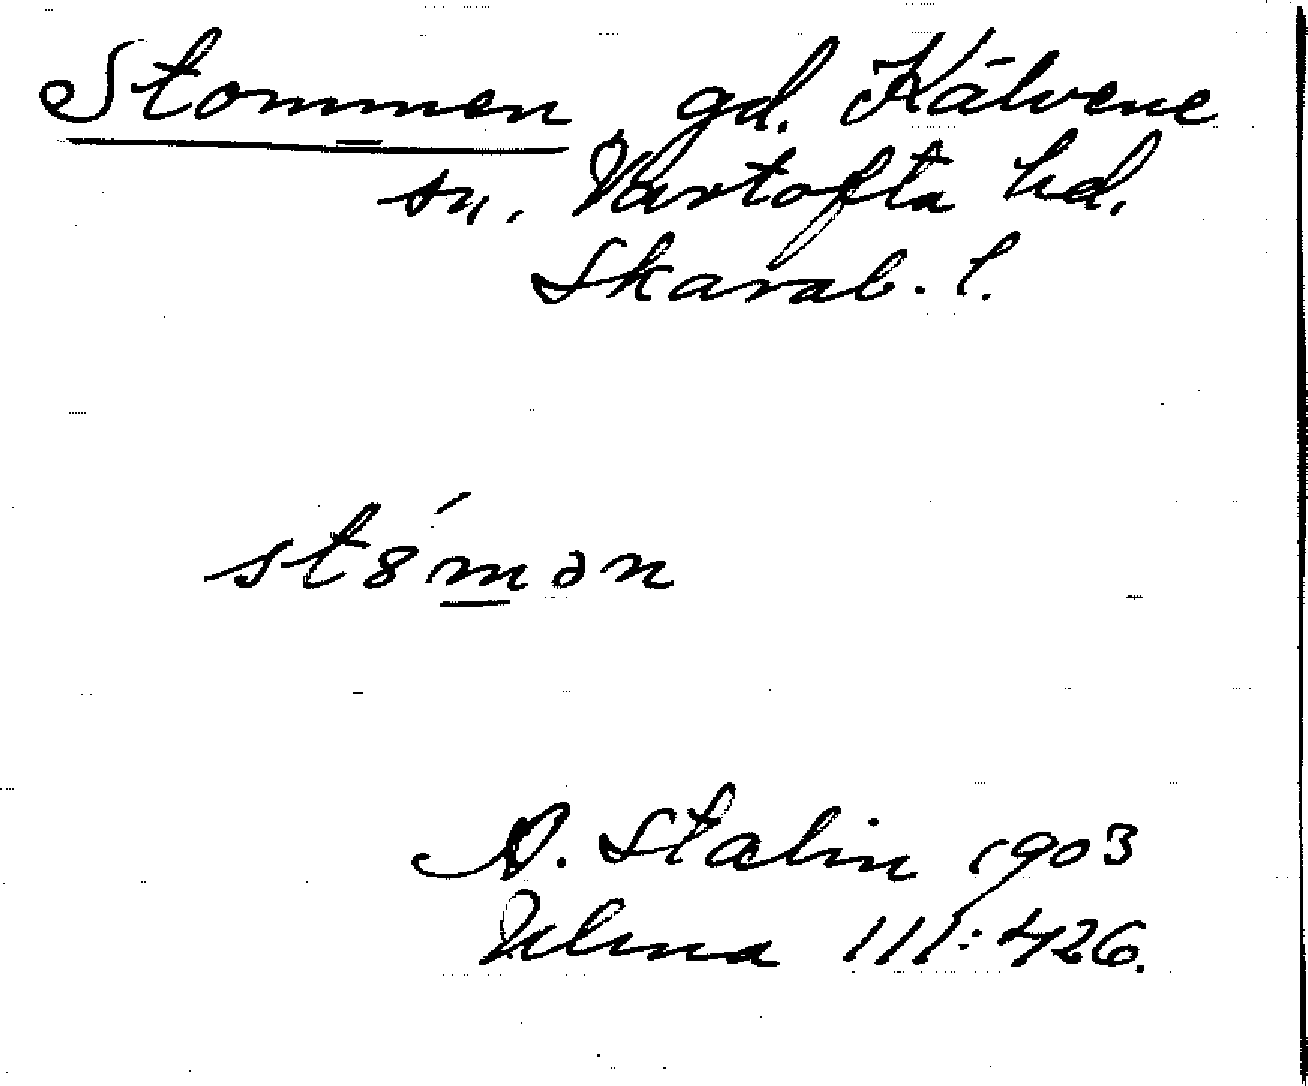 Stommen gd. Kälvene
sn. Vartofta hd.
Skarab. l.
stȣ́mən
A. Stalin 1903
Ulma 111:426.